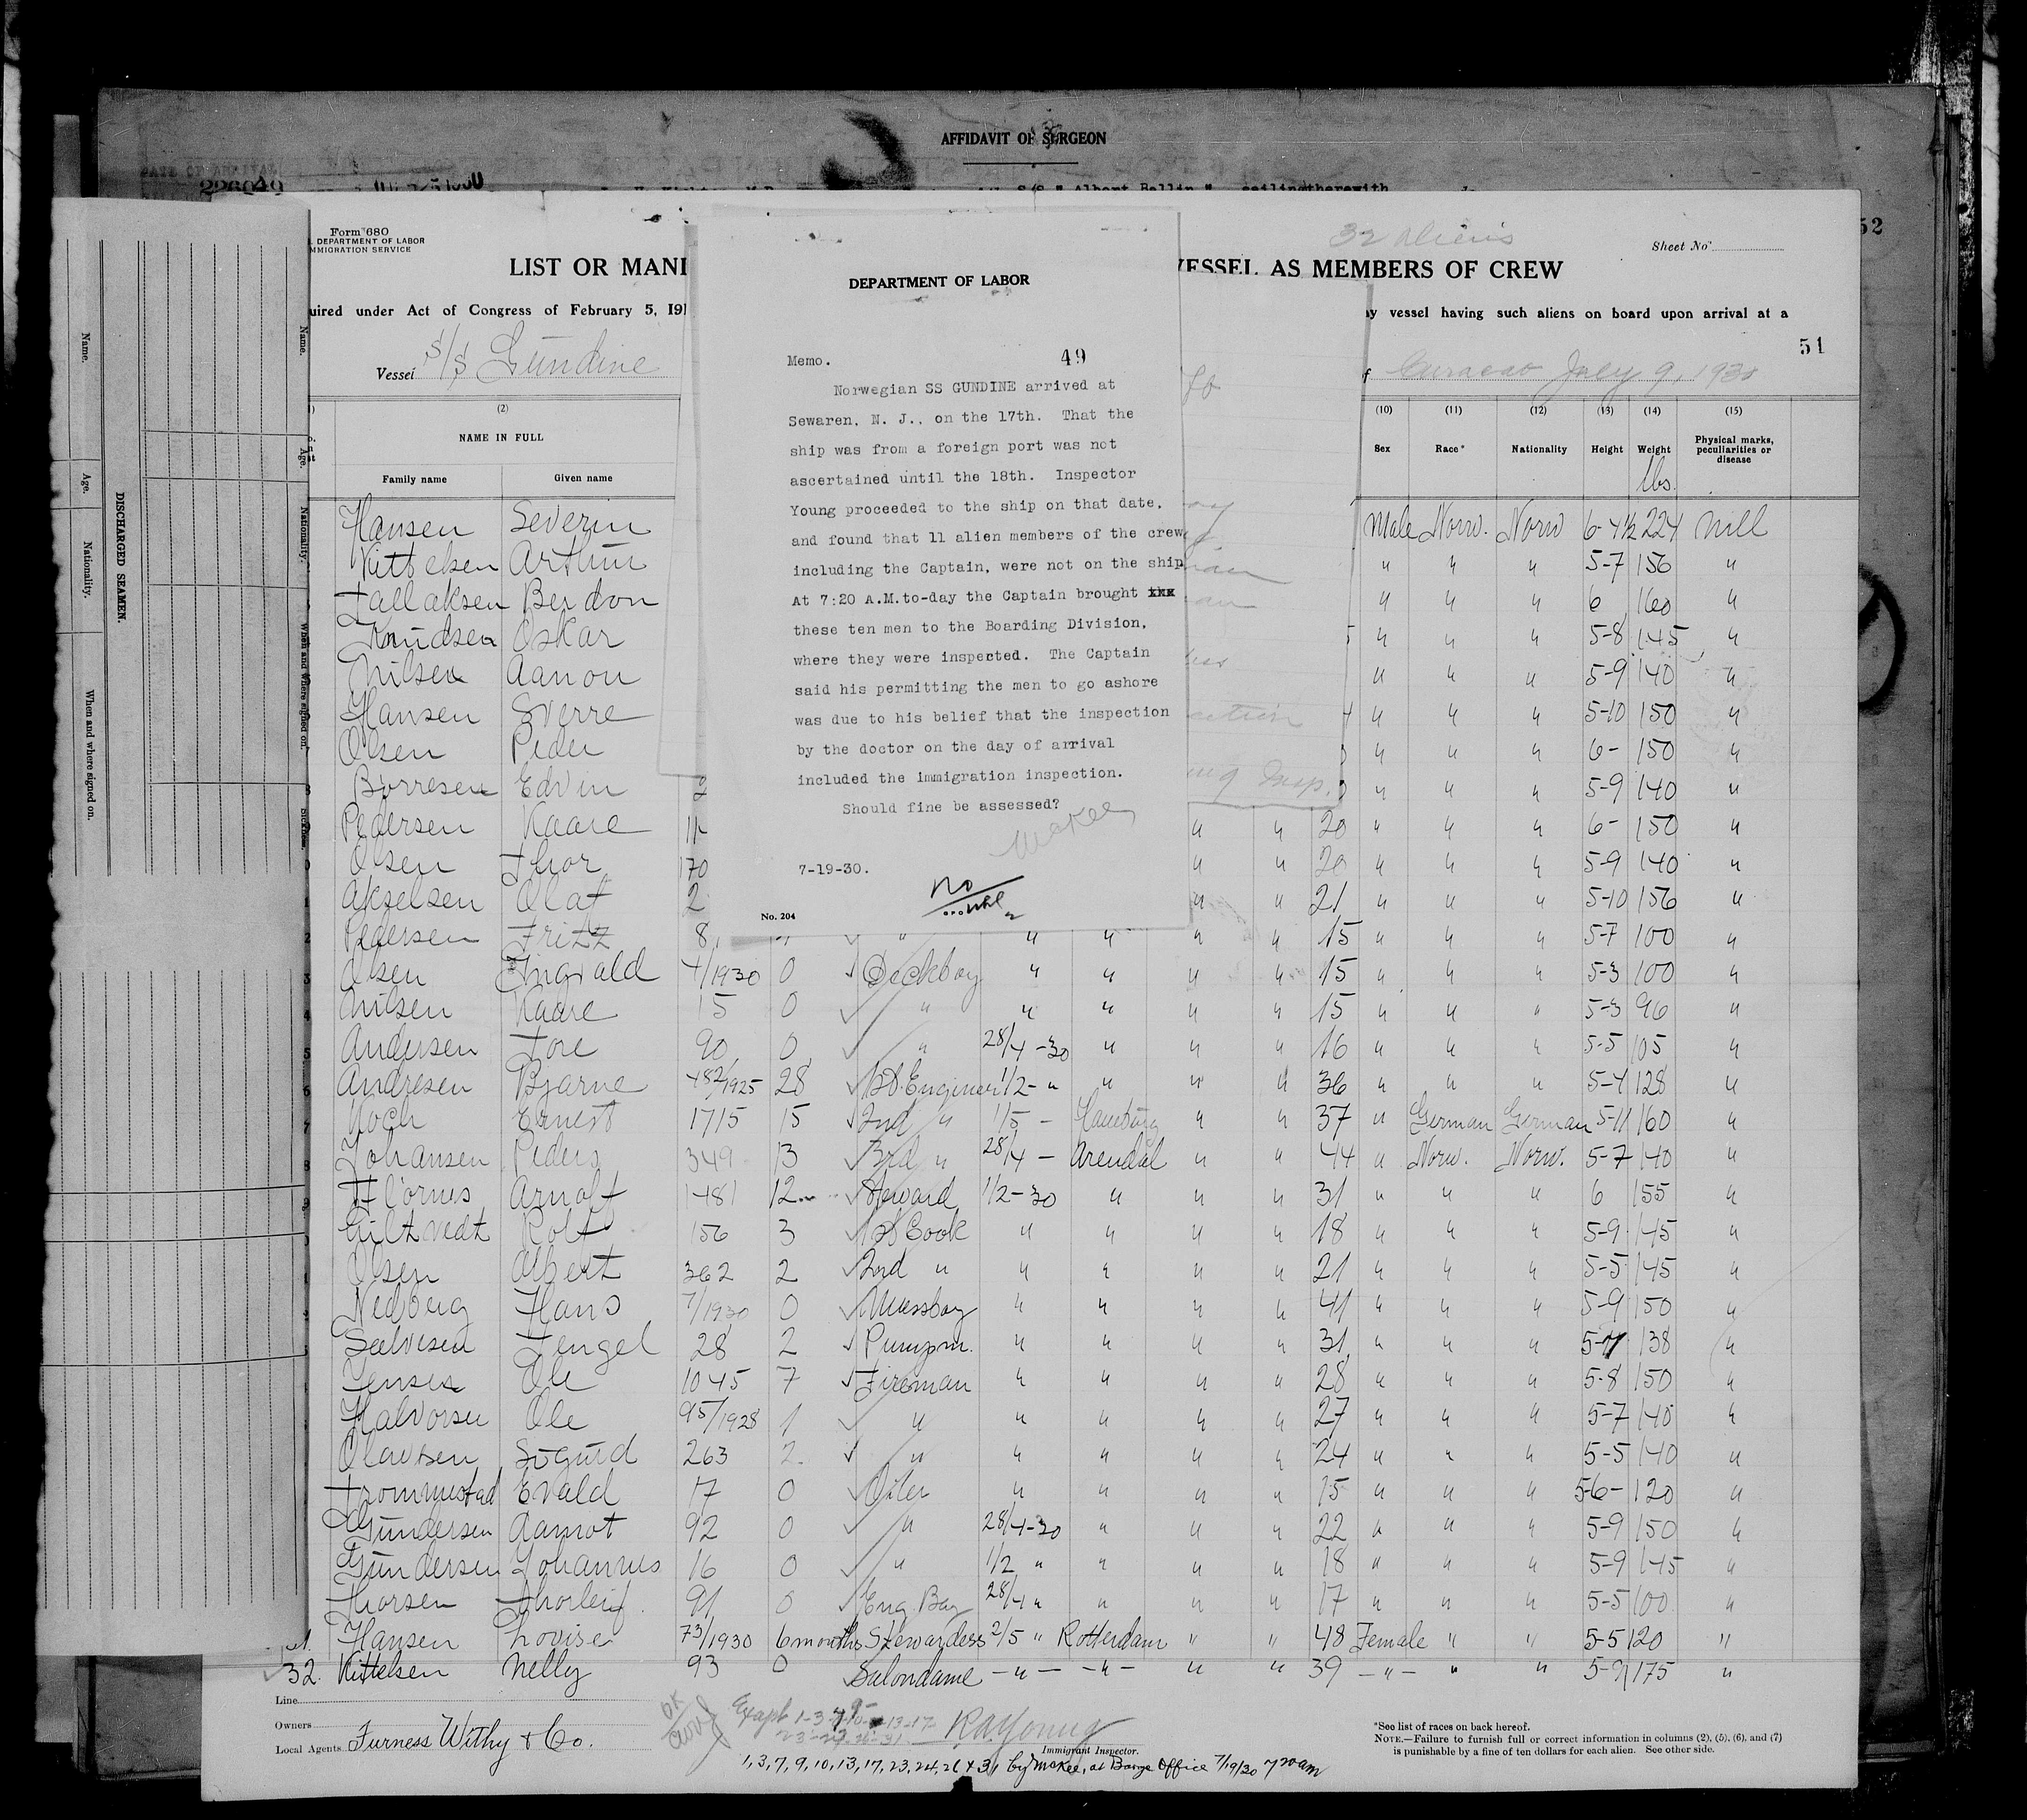 AFFIDAVIT OF SURGEON
DATE OF ARRIVAL
S/S " Albert Ballin " sailing therewith
52
Form 680
DEPARTMENT OF LABOR
IMMIGRATION SERVICE
32 aliens
Sheet No
LIST OR MANI
VESSEL AS MEMBERS OF CREW
uired under Act of Congress of February 5, 191
ny vessel having such aliens on board upon arrival at a
51
Vessel S/S Gundine
f Curacao July 9, 1930
DEPARTMENT OF LABOR
Memo.
49
Norwegian SS GUNDINE arrived at
Sewaren, N. J., on the 17th. That the
ship was from a foreign port was not
ascertained until the 18th. Inspector
Young proceeded to the ship on that date,
and found that 11 alien members of the crew
including the Captain, were not on the ship
At 7:20 A.M.to-day the Captain brought xxx
these ten men to the Boarding Division,
where they were inspected. The Captain
said his permitting the men to go ashore
was due to his belief that the inspection
by the doctor on the day of arrival
included the immigration inspection.
Should fine be assessed?
McKee
7-19-30.
No
No. 204
DISCHARGED SEAMEN.
Name.
Age.
Nationality.
When and where signed on.
Name.
Age.
Nationality.
When and where signed on.
Sickness.
(2) (10) (11) (12) (13) (14) (15)
NAME IN FULL Sex Race* Nationality Height Weight Physical marks, peculiarities or disease
Family name Given name lbs.
Hansen Severin Male Norw. Norw 6-4½ 224 nill
Kittelsen Arthur " " " 5-7 156 "
Tallaksen Berdon " " " 6 160 "
Knudsen Oskar " " " 5-8 145 "
Nilsen Aanon " " " 5-9 140 "
Hansen Sverre " " " 5-10 150 "
Olsen Peder " " " 6- 150 "
Börresen Edvin " " " 5-9 140 "
Pedersen Kaare 11 " " 20 " " " 6- 150 "
Olsen Thor 170 " " 20 " " " 5-9 140 "
Akselsen Olaf 2 " " 21 " " " 5-10 156 "
Pedersen Fritz 8 " " " " " 15 " " " 5-7 100 "
Olsen Ingvald 4/1930 0 Deckboy " " " " 15 " " " 5-3 100 "
Nilsen Kaare 15 0 " " " " " 15 " " " 5-3 96 "
Andersen Tore 90 0 " 28/4-30 " " " 16 " " " 5-5 105 "
Andresen Bjarne 482/1925 28 1st Engineer 1/2- " " " " 36 " " " 5-4 128 "
Koch Ernest 1715 15 2nd " 1/5 - Hamburg " " 37 " German German 5-11 160 "
Johansen Peders 349 13 3rd " 28/4 - Arendal " " 44 " Norw. Norw. 5-7 140 "
Arnolf 1481 12 Steward 1/2-30 " " " 31 " " " 6 155 "
Giltvedt Rolf 156 3 1st Cook " " " " 18 " " " 5-9 145 "
Olsen Albert 362 2 2nd " " " " " 21 " " " 5-5 145 "
Nedberg Hans 7/1930 0 Messboy " " " " 41 " " " 5-9 150 "
Salvesen Tengel 28 2 Pumpm. " " " " 31 " " " 5-11 138 "
Jensen Ole 1045 7 Fireman " " " " 28 " " " 5-8 150 "
Halvorsen Ole 95/1928 1 " " " " " 27 " " " 5-7 140 "
Olavsen Sigurd 263 2 " " " " " 24 " " " 5-5 140 "
Trommestad Evald 17 0 Oiler " " " " 15 " " " 5-6- 120 "
Gundersen Aamot 92 0 " 28/4-30 " " " 22 " " " 5-9 150 "
Gundersen Johannes 16 0 " 1/2 " " " " 18 " " " 5-9 145 "
Thorsen Thorleif 91 0 Eng Boy 28/4 " " " " 17 " " " 5-5 100 "
31. Hansen Lovise 73/1930 6 months Stewardess 2/5 " Rotterdam " " 48 Female " " 5-5 120 "
32. Kittelsen Nelly 93 0 Salondame - " - - " - " " 39 - " - " " 5-9 175 "
Line
Owners
Local Agents Furness Withy & Co.
Except
R A Young
Immigrant Inspector.
1,3,7,9,10,13,17,23,24,26 & 31 by McKee, at Barge Office 7/19/30 720 am
*See list of races on back hereof.
NOTE.—Failure to furnish full or correct information in columns (2), (5), (6), and (7)
is punishable by a fine of ten dollars for each alien. See other side.